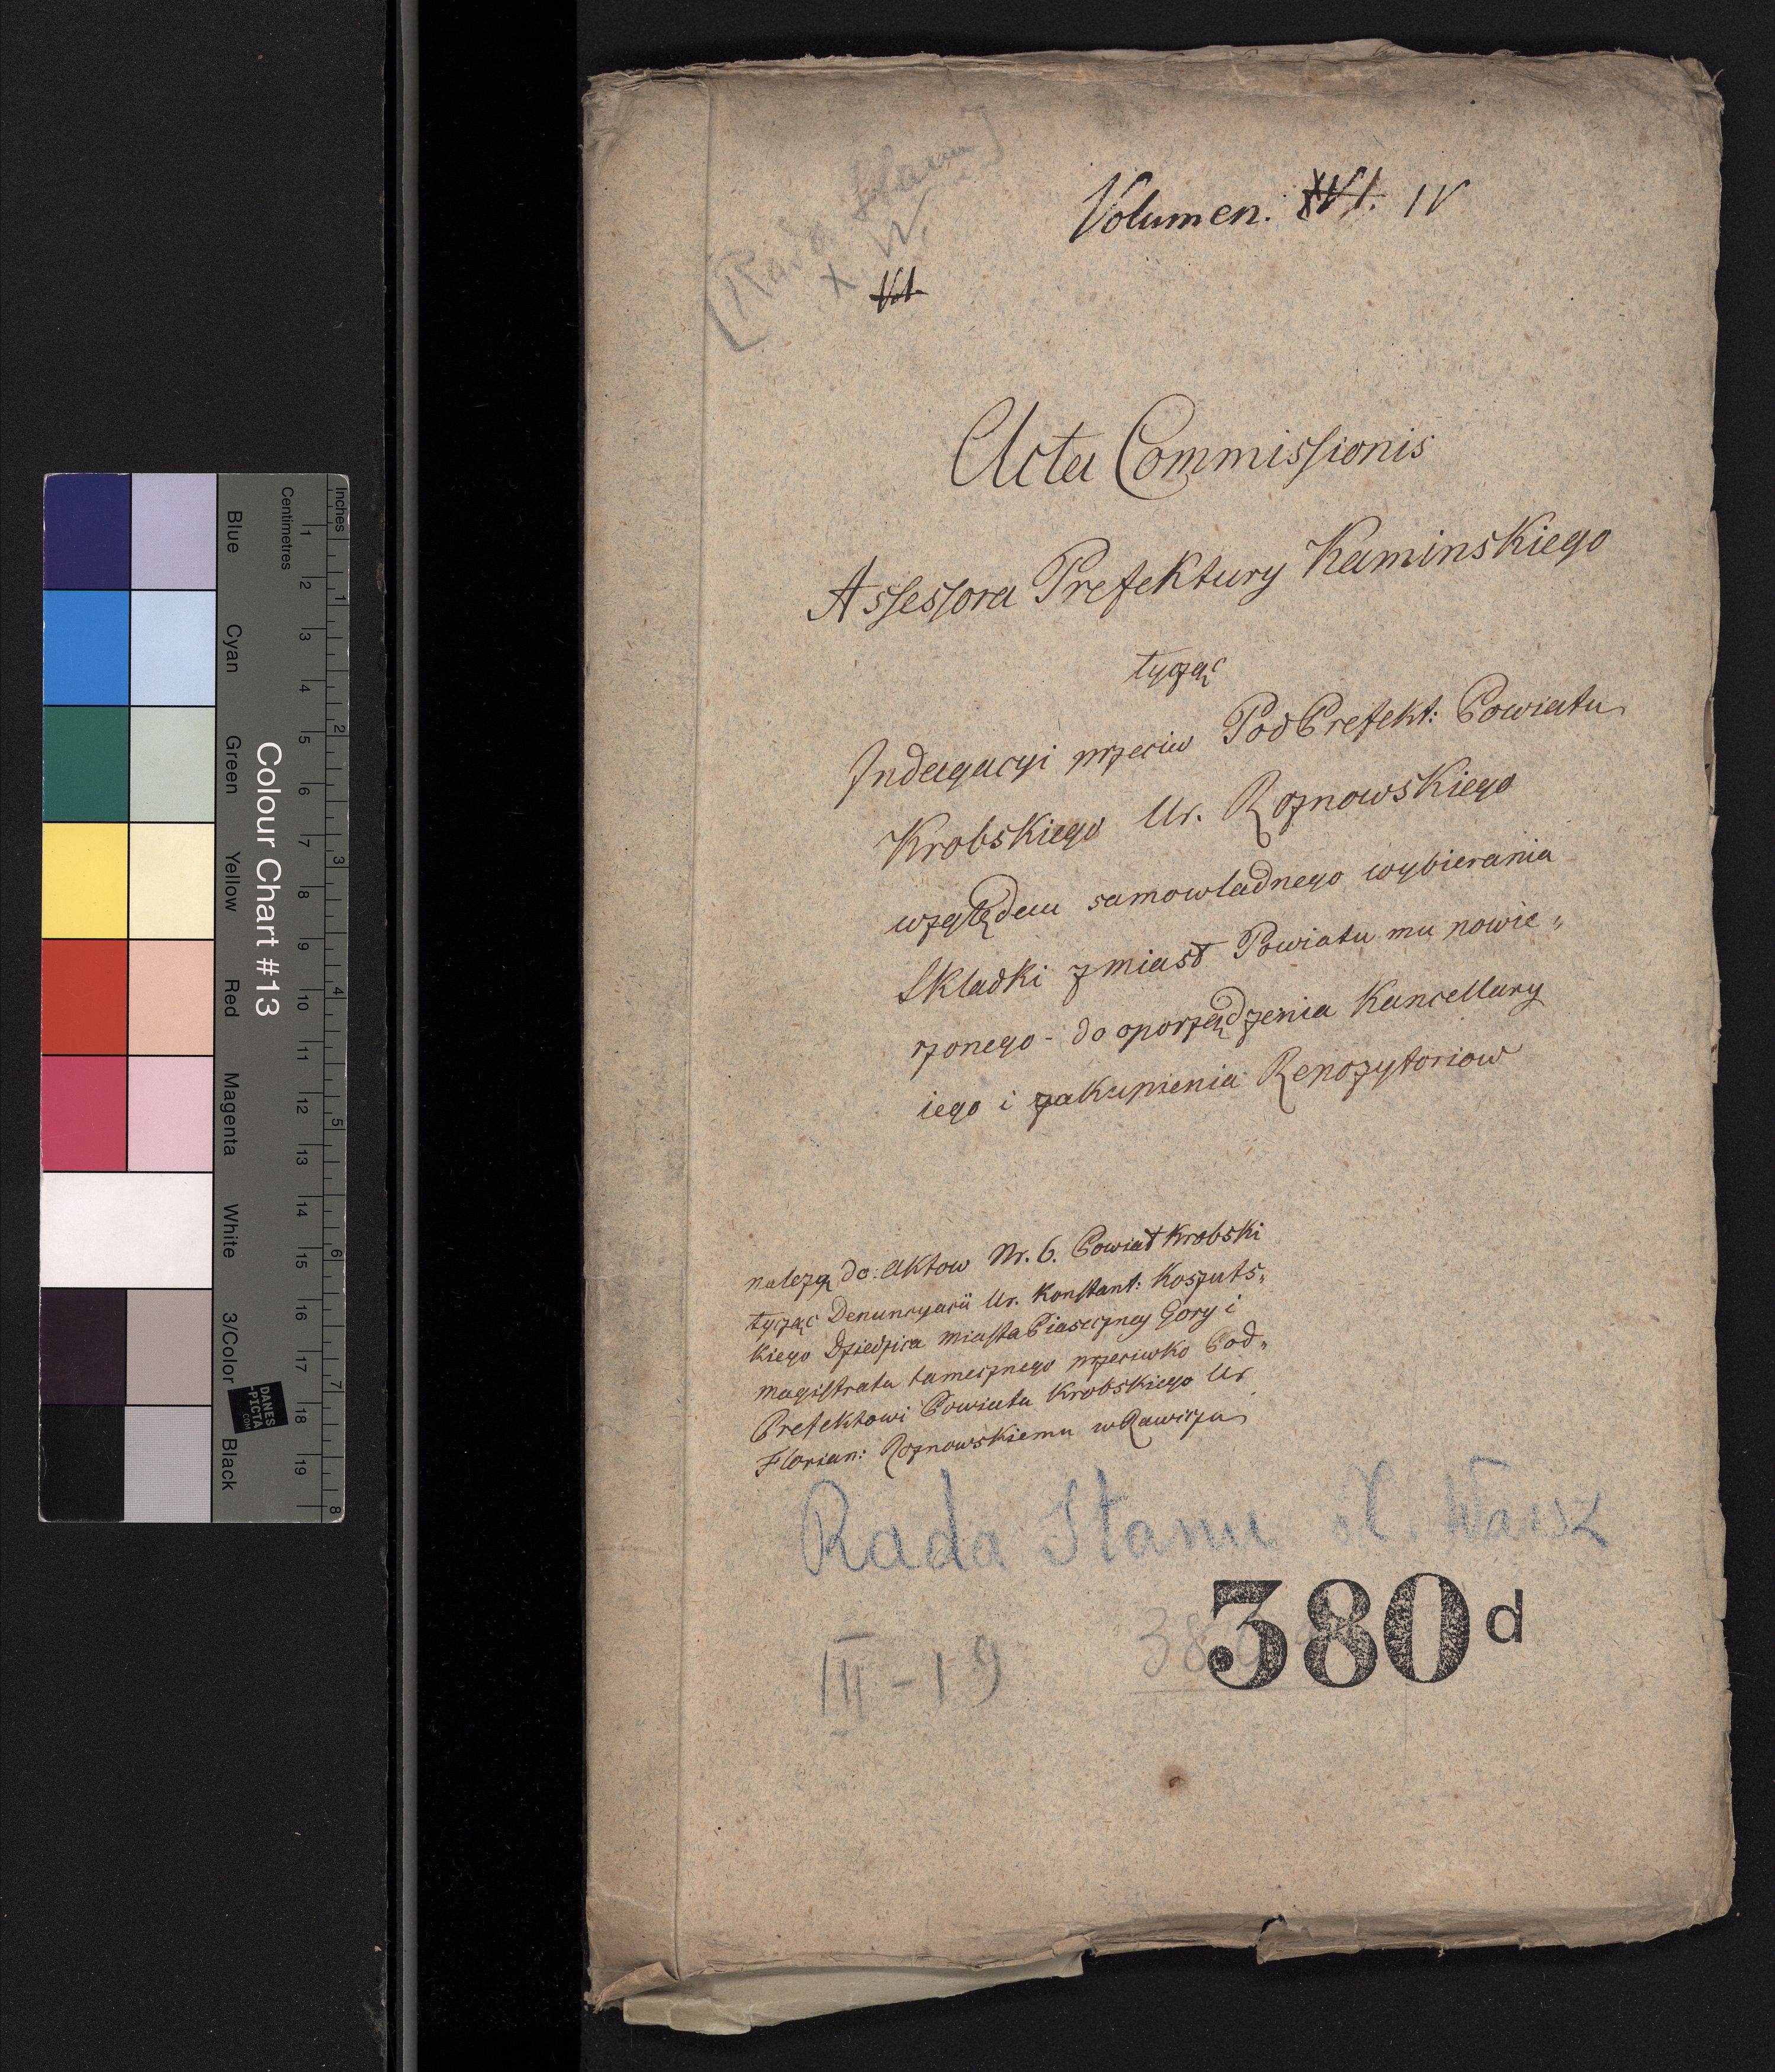 [Rada Stanu]
X. W.
Volumen. XVI. IV
Vol.
Acta Commissionis
Assessora Prefektury Kaminskiego
tycząc
Indagacyi przeciw PodPrefekt: Powiatu
Krobskiego Ur. Roznowskiego
względem samowładnego wybierania
Składki z miast Powiatu mu powie„
rzonego - do oporządzenia Kancellary
iego i zakupienia Repozytoriow
należą do Aktow Nr. 6. Powiat Krobski
tycząc Denuncyacii Ur. Konstant: Koszuts„
kiego Dziedzica miasta Piaseczney Gory i
magistratu tamecznego przeciwko Pod„
Prefektowi Powiatu Krobskiego Ur
Florian: Roznowskiemu w Rawiczu
Rada Stanu X. Warsz
380 d
III-19
Colour Chart #13
Blue
Cyan
Green
Yellow
Red
Magenta
White
3/Color
Black
Inches
1
2
3
4
5
6
7
8
Centimetres
1
2
3
4
5
6
7
8
9
10
11
12
13
14
15
16
17
18
19
DANES
-PICTA
.COM